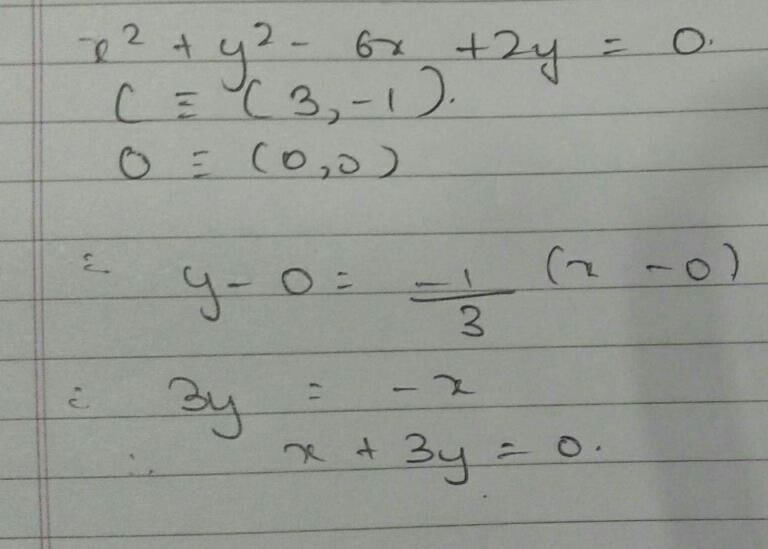 x² + y² - 6x + 2y = 0.
C ≡ (3, -1).
O ≡ (0,0)
∴ y - 0 = -1/3 (x - 0)
∴ 3y = -x
∴ x + 3y = 0.